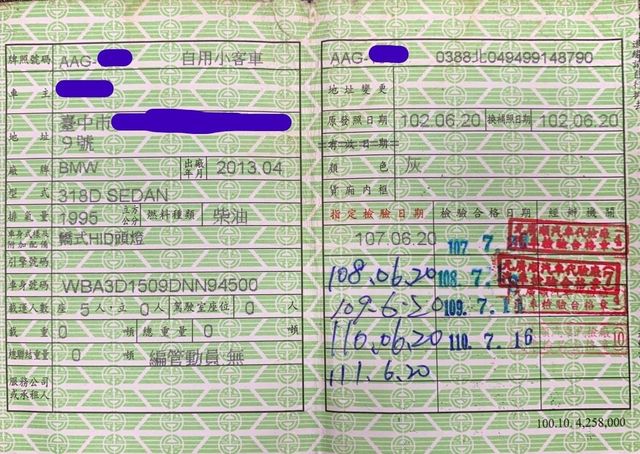 牌照號碼 AAG- 自用小客車
車主
地址 臺中市
9號
廠牌 BMW 出廠年月 2013.04
型式 318D SEDAN
排氣量 1995 立方公分 燃料種類 柴油
車身式樣及附加配備 轎式HID頭燈
引擎號碼
車身號碼 WBA3D1509DNN94500
載運人數 座 5 人、立 0 人 駕駛室座位 0 人
載重 0 噸 總重量 0 噸
總聯結重量 0 噸 編管動員:無
服務公司或承租人
AAG- 0388JL049499148790
地址變更
原發照日期 102.06.20 換補照日期 102.06.20
有效日期
顏色 灰
貨廂內框
指定檢驗日期 檢驗合格日期 經辦機關
107.06.20 107.7.
108.06.20 108.7.
109.6.20 109.7.1
110.06.20 110.7.16
111.6.20
100.10. 4,258,000